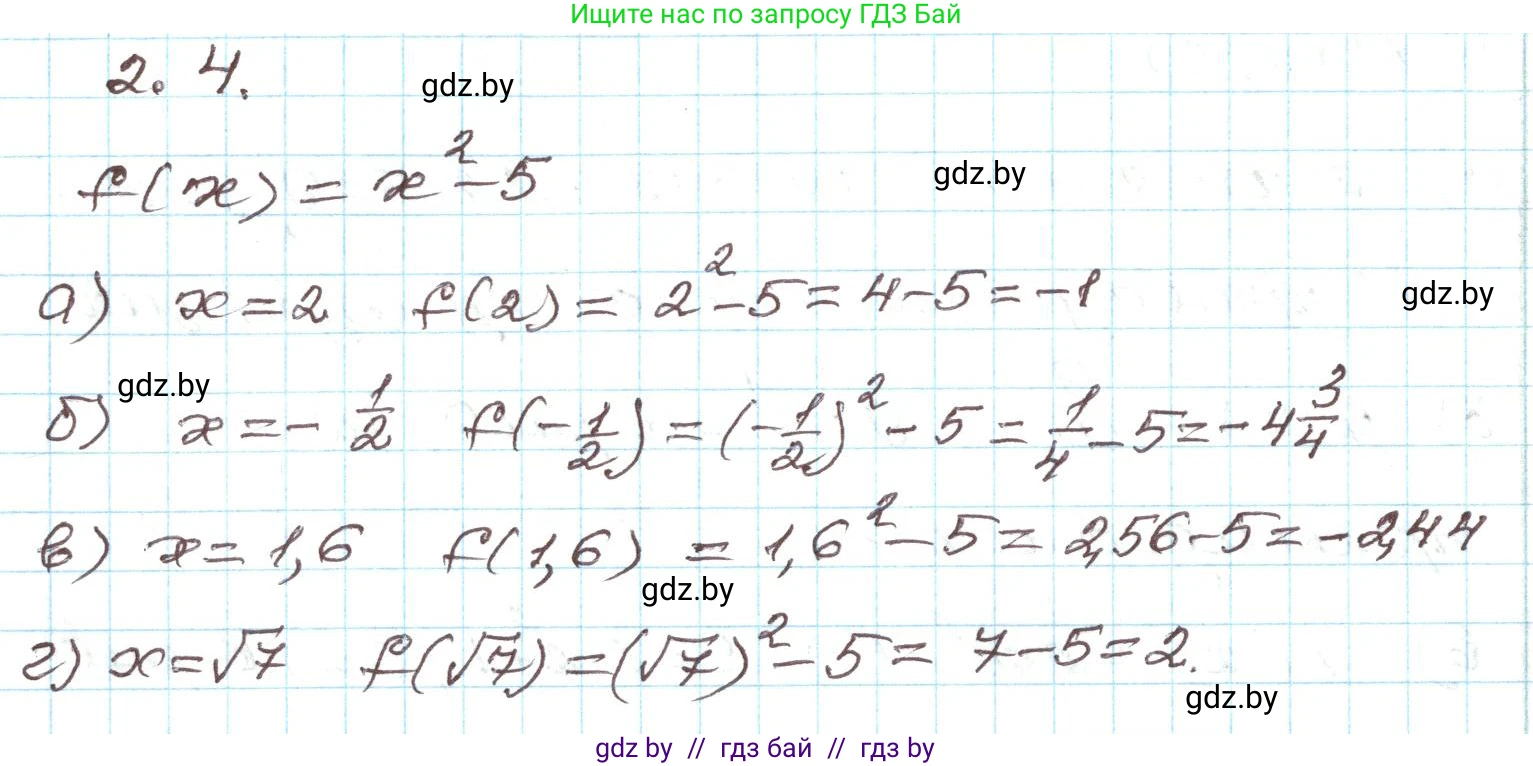 Ищите нас по запросу ГДЗ Бай
2.4.
gdz.by
f(x) = x² - 5
gdz.by
а) x = 2 f(2) = 2² - 5 = 4 - 5 = -1
gdz.by
gdz.by
б) x = - 1/2 f(-1/2) = (-1/2)² - 5 = 1/4 - 5 = -4 3/4
в) x = 1,6 f(1,6) = 1,6² - 5 = 2,56 - 5 = -2,44
gdz.by
г) x = √7 f(√7) = (√7)² - 5 = 7 - 5 = 2.
gdz.by
gdz by // гдз бай // гдз by